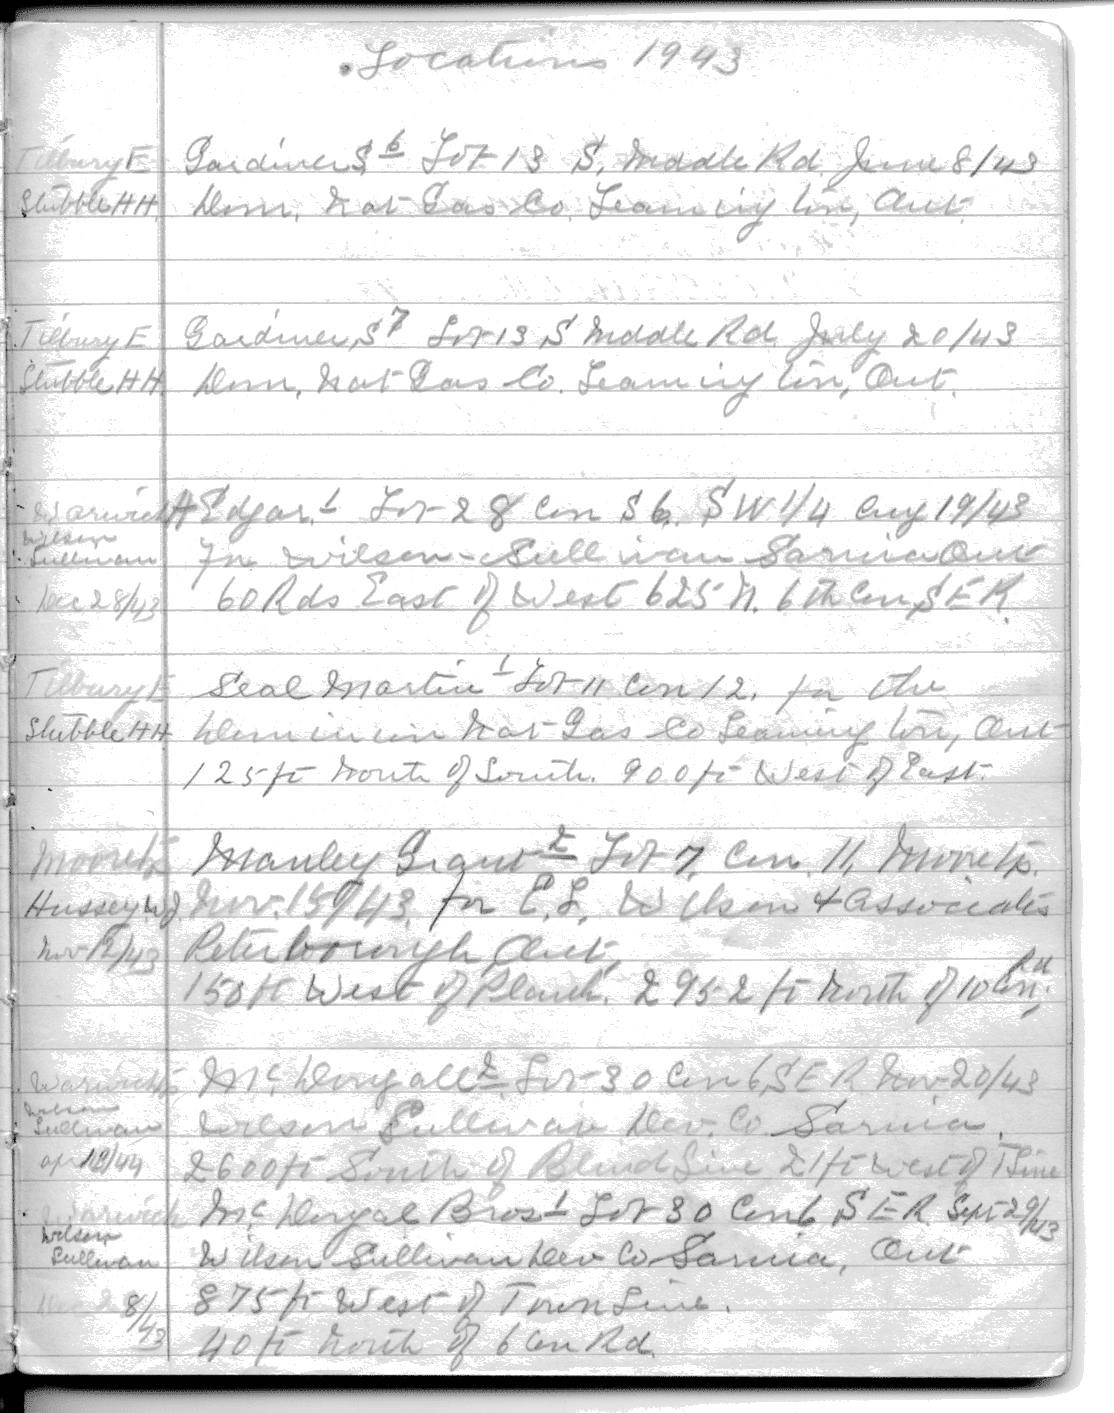 Locations 1943
Tilbury E Gardiner S 6 Lot 13 S, Middle Rd. June 8/43
Stubble HH. Dom, Nat Gas Co. Leamington, Ont.
Tilbury E Gardiner, S 7 Lot 13 S Middle Rd July 20/43
Stubble HH. Dom, Nat Gas Co. Leamington, Ont.
Warwick A Edgar. 1 Lot 28 Con S 6. SW 1/4 Aug 19/43
Wilson
Sullivan for Wilson-Sullivan Sarnia Ont
Dec 28/43 60 Rds East of West 625 N. 6th Con, S E R.
Tilbury E Seal Martin 1 Lot 11 Con 12. for the
Stubble HH. Dominion Nat Gas Co Leamington, Ont
125 ft North of South. 900 ft West of East.
Moore tp Manley Grant 2 Lot 7, Con. 11, Moore tp.
Hussey WJ Nov. 15/43 for E. L. Wilson & Associates
Nov 12/43 Peterborough, Ont,
150 ft West of Plank. 2952 ft North of 10 Con. Rd
Warwick tp Mc Dougall 2 Lot 30 Con 6, S E R Nov 20/43
Wilson
Sullivan Wilson Sullivan Dev. Co. Sarnia.
Apr 18/44 2600 ft South of Blind Line 21 ft West of T Line
Warwick Mc Dougal Bros 1 Lot 30 Con 6 S E R. Sept 29/43
Wilson
Sullivan Wilson Sullivan Dev Co Sarnia, Ont
8/43 875 ft West of Town Line.
40 ft North of 6 Con Rd.